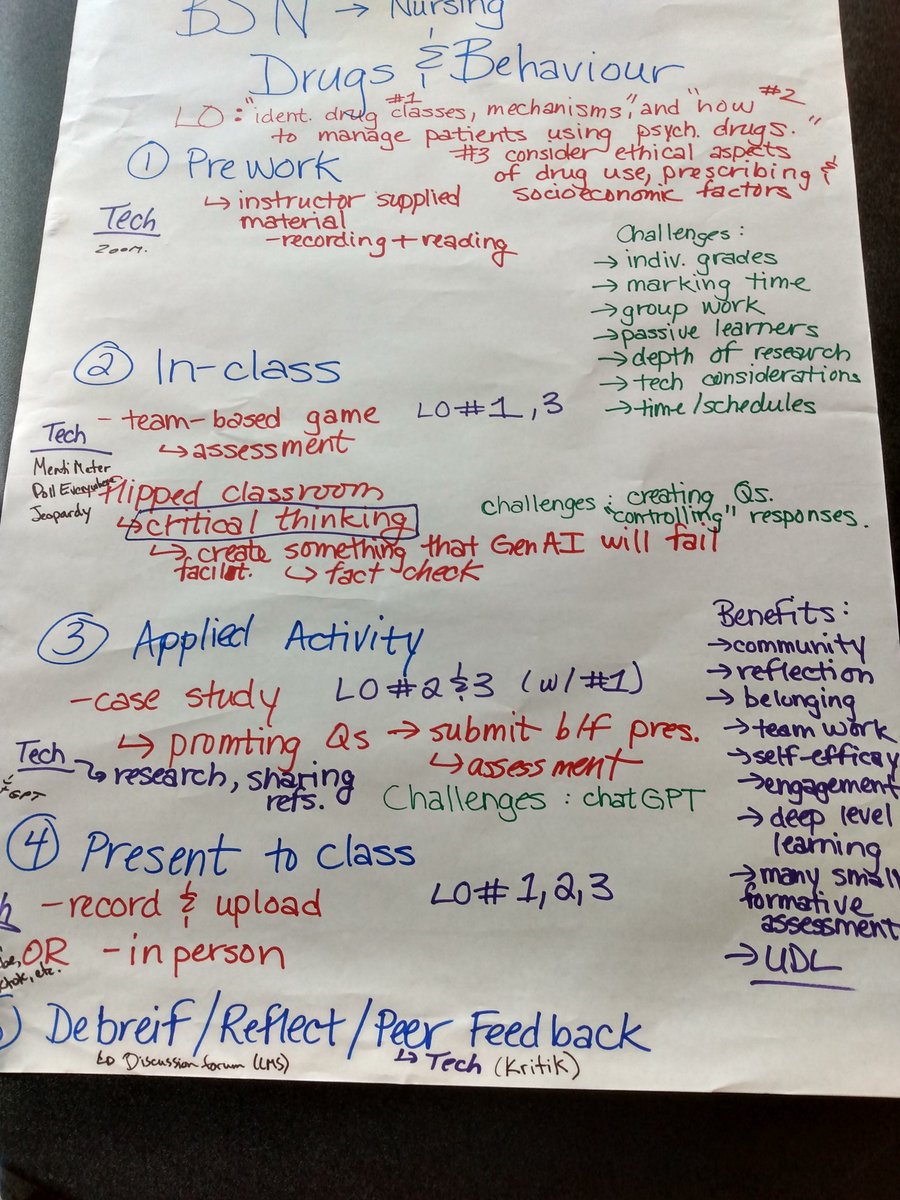 BSN → Nursing
Drugs & Behaviour
LO: "ident. drug #1 classes, mechanisms", and "how #2
to manage patients using psych. drugs."
#3 consider ethical aspects
of drug use, prescribing &
socioeconomic factors
① Pre work
↳ instructor supplied
material
- recording + reading
Tech
Zoom.
Challenges:
→ indiv. grades
→ marking time
→ group work
→ passive learners
→ depth of research
→ tech considerations
→ time/schedules
② In-class
- team-based game
↳ assessment
LO #1,3
Tech
MentiMeter
Poll Everywhere
Jeopardy
flipped classroom
↳ critical thinking
↳ create something that GenAI will fail
facilit. ↳ fact check
challenges: creating Qs.
"controlling" responses.
③ Applied Activity
- case study
LO #2 & 3 (w/#1)
↳ promting Qs → submit b/f pres.
↳ assessment
Tech
GPT
research, sharing
refs.
Challenges: chatGPT
Benefits:
→ community
→ reflection
→ belonging
→ team work
→ self-efficay
→ engagement
→ deep level
learning
→ many small
formative
assessment
→ UDL
④ Present to class
- record & upload
LO# 1,2,3
OR - in person
etc.
) Debreif/Reflect/Peer Feedback
↳ Discussion forum (LMS)
↳ Tech (Kritik)